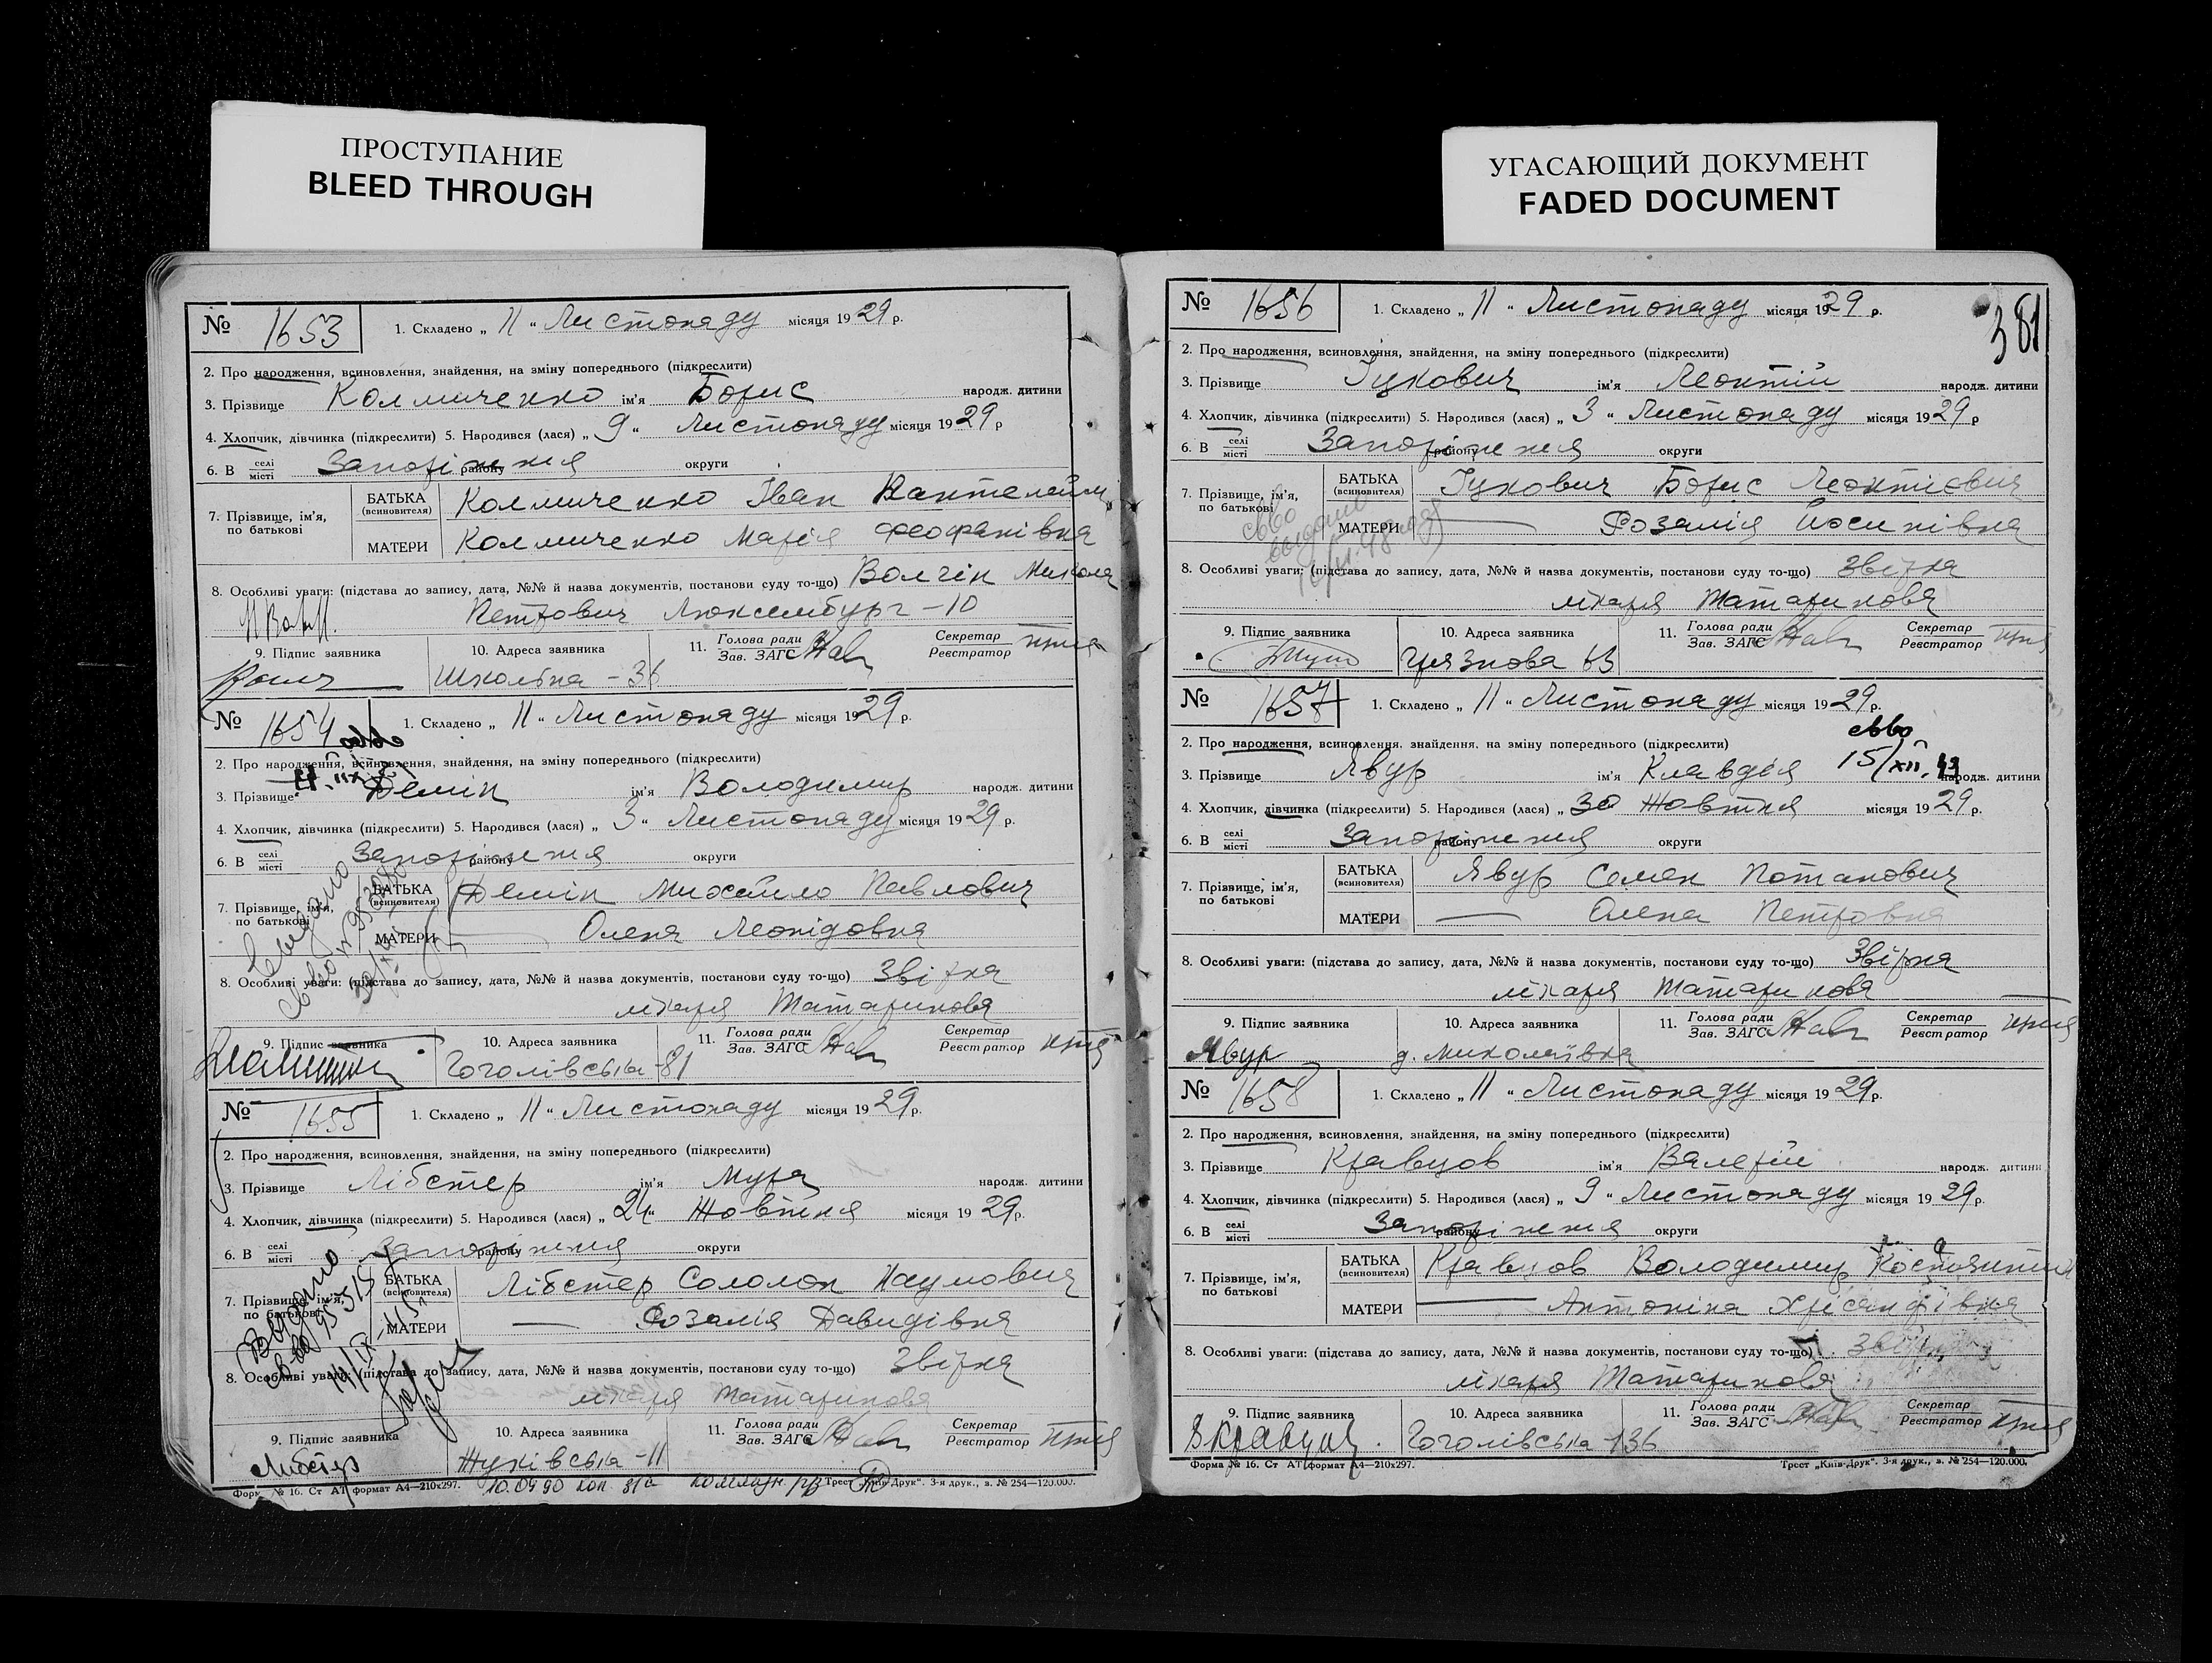 ПРОСТУПАНИЕ
BLEED THROUGH
УГАСАЮЩИЙ ДОКУМЕНТ
FADED DOCUMENT
№ 1653 1. Складено „ 11 “ Листопаду місяця 1929 р.
2. Про народження, всиновлення, знайдення, на зміну попереднього (підкреслити)
3. Прізвище Колмиченко ім'я Борис народж. дитини
4. Хлопчик, дівчинка (підкреслити) 5. Народився (лася) „ 9 “ Листопаду місяця 1929 р
6. В селі місті Запоріжжя району округи
7. Прізвище, ім'я, по батькові
БАТЬКА (всиновителя) Колмиченко Іван Пантелейм.
МАТЕРИ Колмиченко Марія Феофанівна
8. Особливі уваги: (підстава до запису, дата, №№ й назва документів, постанови суду то-що) Волчін Микола
Петрович Люксембург-10
9. Підпис заявника 10. Адреса заявника 11. Голова ради Зав. ЗАГС Секретар Реєстратор
Школьна - 36
№ 1654 1. Складено „ 11 “ Листопаду місяця 1929 р.
2. Про народження, всиновлення, знайдення, на зміну попереднього (підкреслити)
3. Прізвище Демін ім'я Володимир народж. дитини
4. Хлопчик, дівчинка (підкреслити) 5. Народився (лася) „ 3 “ Листопаду місяця 1929 р.
6. В селі місті Запоріжжя району округи
7. Прізвище, ім'я, по батькові
БАТЬКА (всиновителя) Демін Михайло Павлович
МАТЕРИ — Олена Леонідовна
8. Особливі уваги: (підстава до запису, дата, №№ й назва документів, постанови суду то-що) Звірка
лікаря Татаринова
9. Підпис заявника 10. Адреса заявника 11. Голова ради Зав. ЗАГС Секретар Реєстратор
Гоголівська-81
№ 1655 1. Складено „ 11 “ Листопаду місяця 1929 р.
2. Про народження, всиновлення, знайдення, на зміну попереднього (підкреслити)
3. Прізвище Лібстер ім'я Мура народж. дитини
4. Хлопчик, дівчинка (підкреслити) 5. Народився (лася) „ 24 “ Жовтня місяця 1929 р.
6. В селі місті Запоріжжя району округи
7. Прізвище, ім'я, по батькові
БАТЬКА (всиновителя) Лібстер Соломон Наумович
МАТЕРИ — Розалія Давидівна
Видано
8. Особливі уваги: (підстава до запису, дата, №№ й назва документів, постанови суду то-що) Звірка
лікаря Татаринова
9. Підпис заявника 10. Адреса заявника 11. Голова ради Зав. ЗАГС Секретар Реєстратор
Либстер Жуківська-11
Форм. № 16. Ст АТ формат А4—210х297. 10.04.90 Трест „Київ-Друк“. 3-я друк., з. № 254—120.000.
381
№ 1656 1. Складено „ 11 “ Листопаду місяця 1929 р.
2. Про народження, всиновлення, знайдення, на зміну попереднього (підкреслити)
3. Прізвище Іцкович ім'я Леонтій народж. дитини
4. Хлопчик, дівчинка (підкреслити) 5. Народився (лася) „ 3 “ Листопаду місяця 1929 р
6. В селі місті Запоріжжя району округи
7. Прізвище, ім'я, по батькові
БАТЬКА (всиновителя) Іцкович Борис Леонтієвич
МАТЕРИ — Розалія Йосипівна
8. Особливі уваги: (підстава до запису, дата, №№ й назва документів, постанови суду то-що) Звірка
лікаря Татаринова
9. Підпис заявника 10. Адреса заявника 11. Голова ради Зав. ЗАГС Секретар Реєстратор
Грязнова 63
№ 1657 1. Складено „ 11 “ Листопаду місяця 1929 р.
2. Про народження, всиновлення, знайдення, на зміну попереднього (підкреслити)
3. Прізвище Явур ім'я Клавдія народж. дитини
4. Хлопчик, дівчинка (підкреслити) 5. Народився (лася) „ 30 Жовтня місяця 1929 р.
6. В селі місті Запоріжжя району округи
7. Прізвище, ім'я, по батькові
БАТЬКА (всиновителя) Явур Семен Потапович
МАТЕРИ — Олена Петровна
8. Особливі уваги: (підстава до запису, дата, №№ й назва документів, постанови суду то-що) Звірка
лікаря Татаринова
9. Підпис заявника 10. Адреса заявника 11. Голова ради Зав. ЗАГС Секретар Реєстратор
Явур д. Миколаївка
№ 1658 1. Складено „ 11 “ Листопаду місяця 1929 р.
2. Про народження, всиновлення, знайдення, на зміну попереднього (підкреслити)
3. Прізвище Кравцов ім'я Валерій народж. дитини
4. Хлопчик, дівчинка (підкреслити) 5. Народився (лася) „ 9 “ Листопаду місяця 1929 р.
6. В селі місті Запоріжжя району округи
7. Прізвище, ім'я, по батькові
БАТЬКА (всиновителя) Кравцов Володимир
МАТЕРИ — Антоніна Хрісанфівна
8. Особливі уваги: (підстава до запису, дата, №№ й назва документів, постанови суду то-що) Звірка
лікаря Татаринова
9. Підпис заявника 10. Адреса заявника 11. Голова ради Зав. ЗАГС Секретар Реєстратор
Гоголівська 136
Форма № 16. Ст АТ формат А4—210х297. Трест „Київ-Друк“. 3-я друк., з. № 254—120.000.